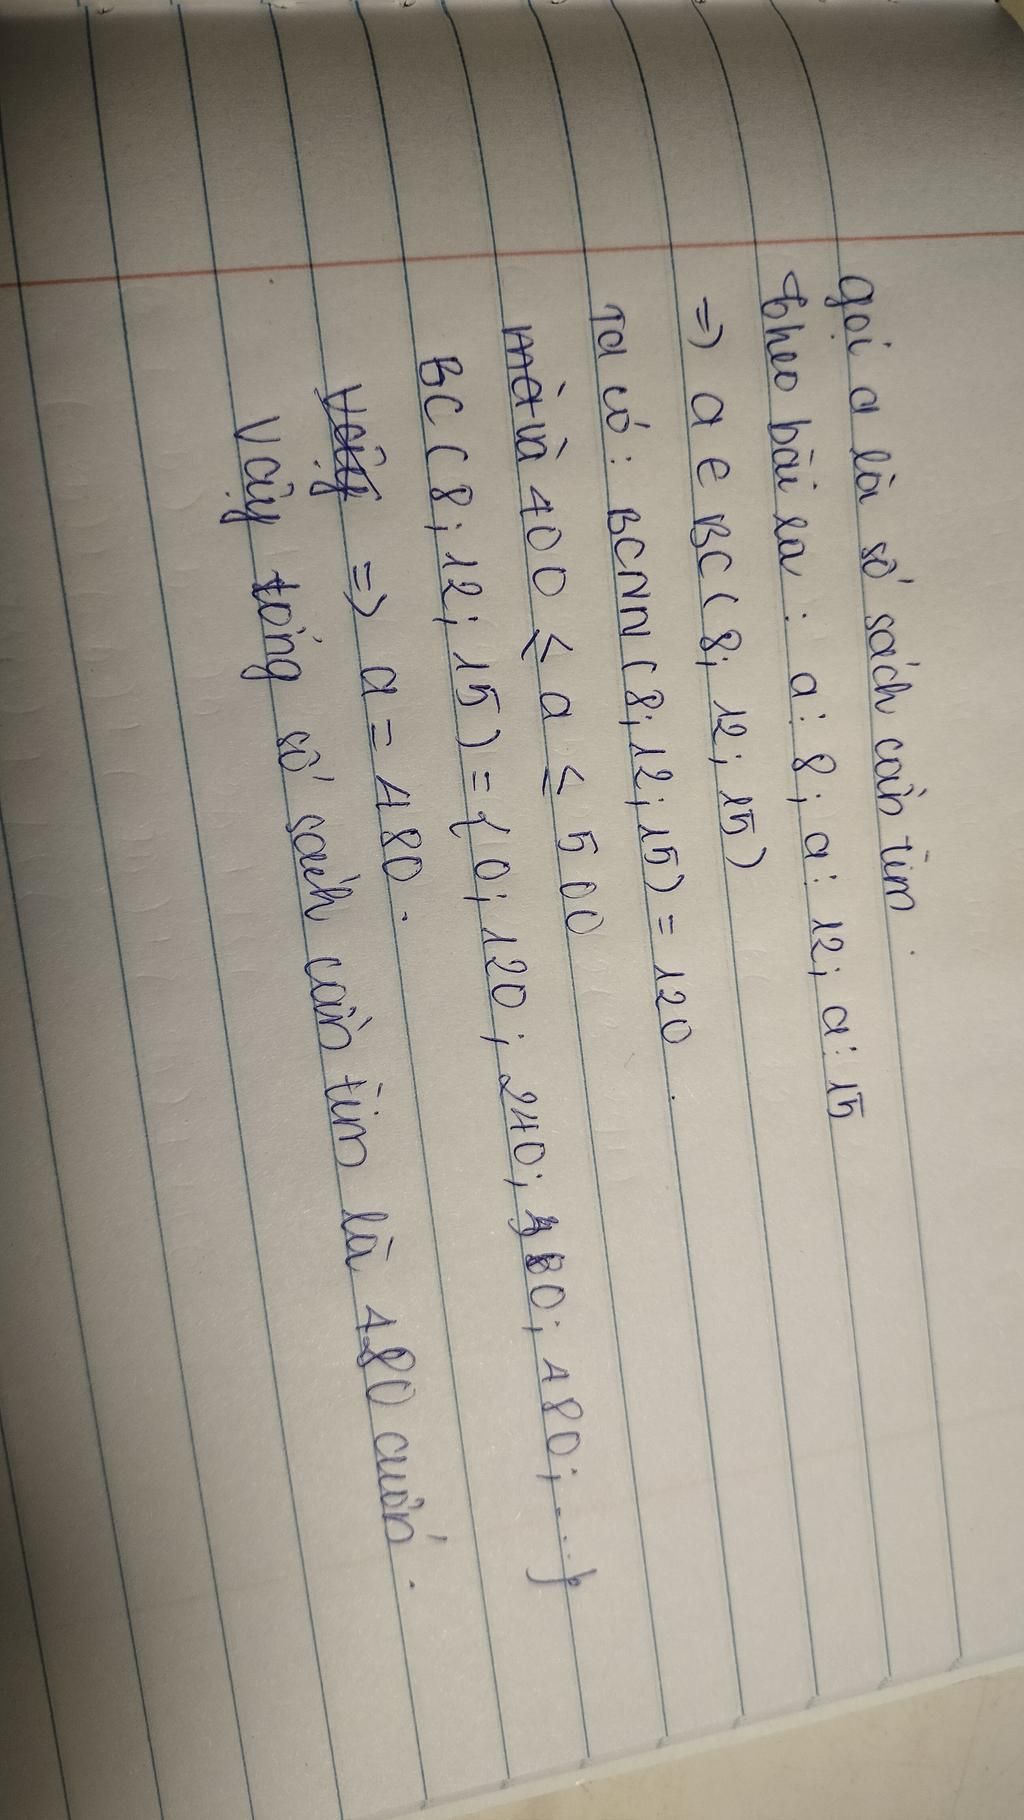 gọi a là số sách cần tìm.
theo bài ra : a : 8 ; a : 12 ; a : 15
=> a ∈ BC ( 8 ; 12 ; 15 )
Ta có : BCNN ( 8 ; 12 ; 15 ) = 120 .
mà và 400 ≤ a ≤ 500
BC ( 8 ; 12 ; 15 ) = { 0 ; 120 ; 240 ; 480 ; ... }
Vậy => a = 480 .
Vậy tổng số sách cần tìm là 480 cuốn .